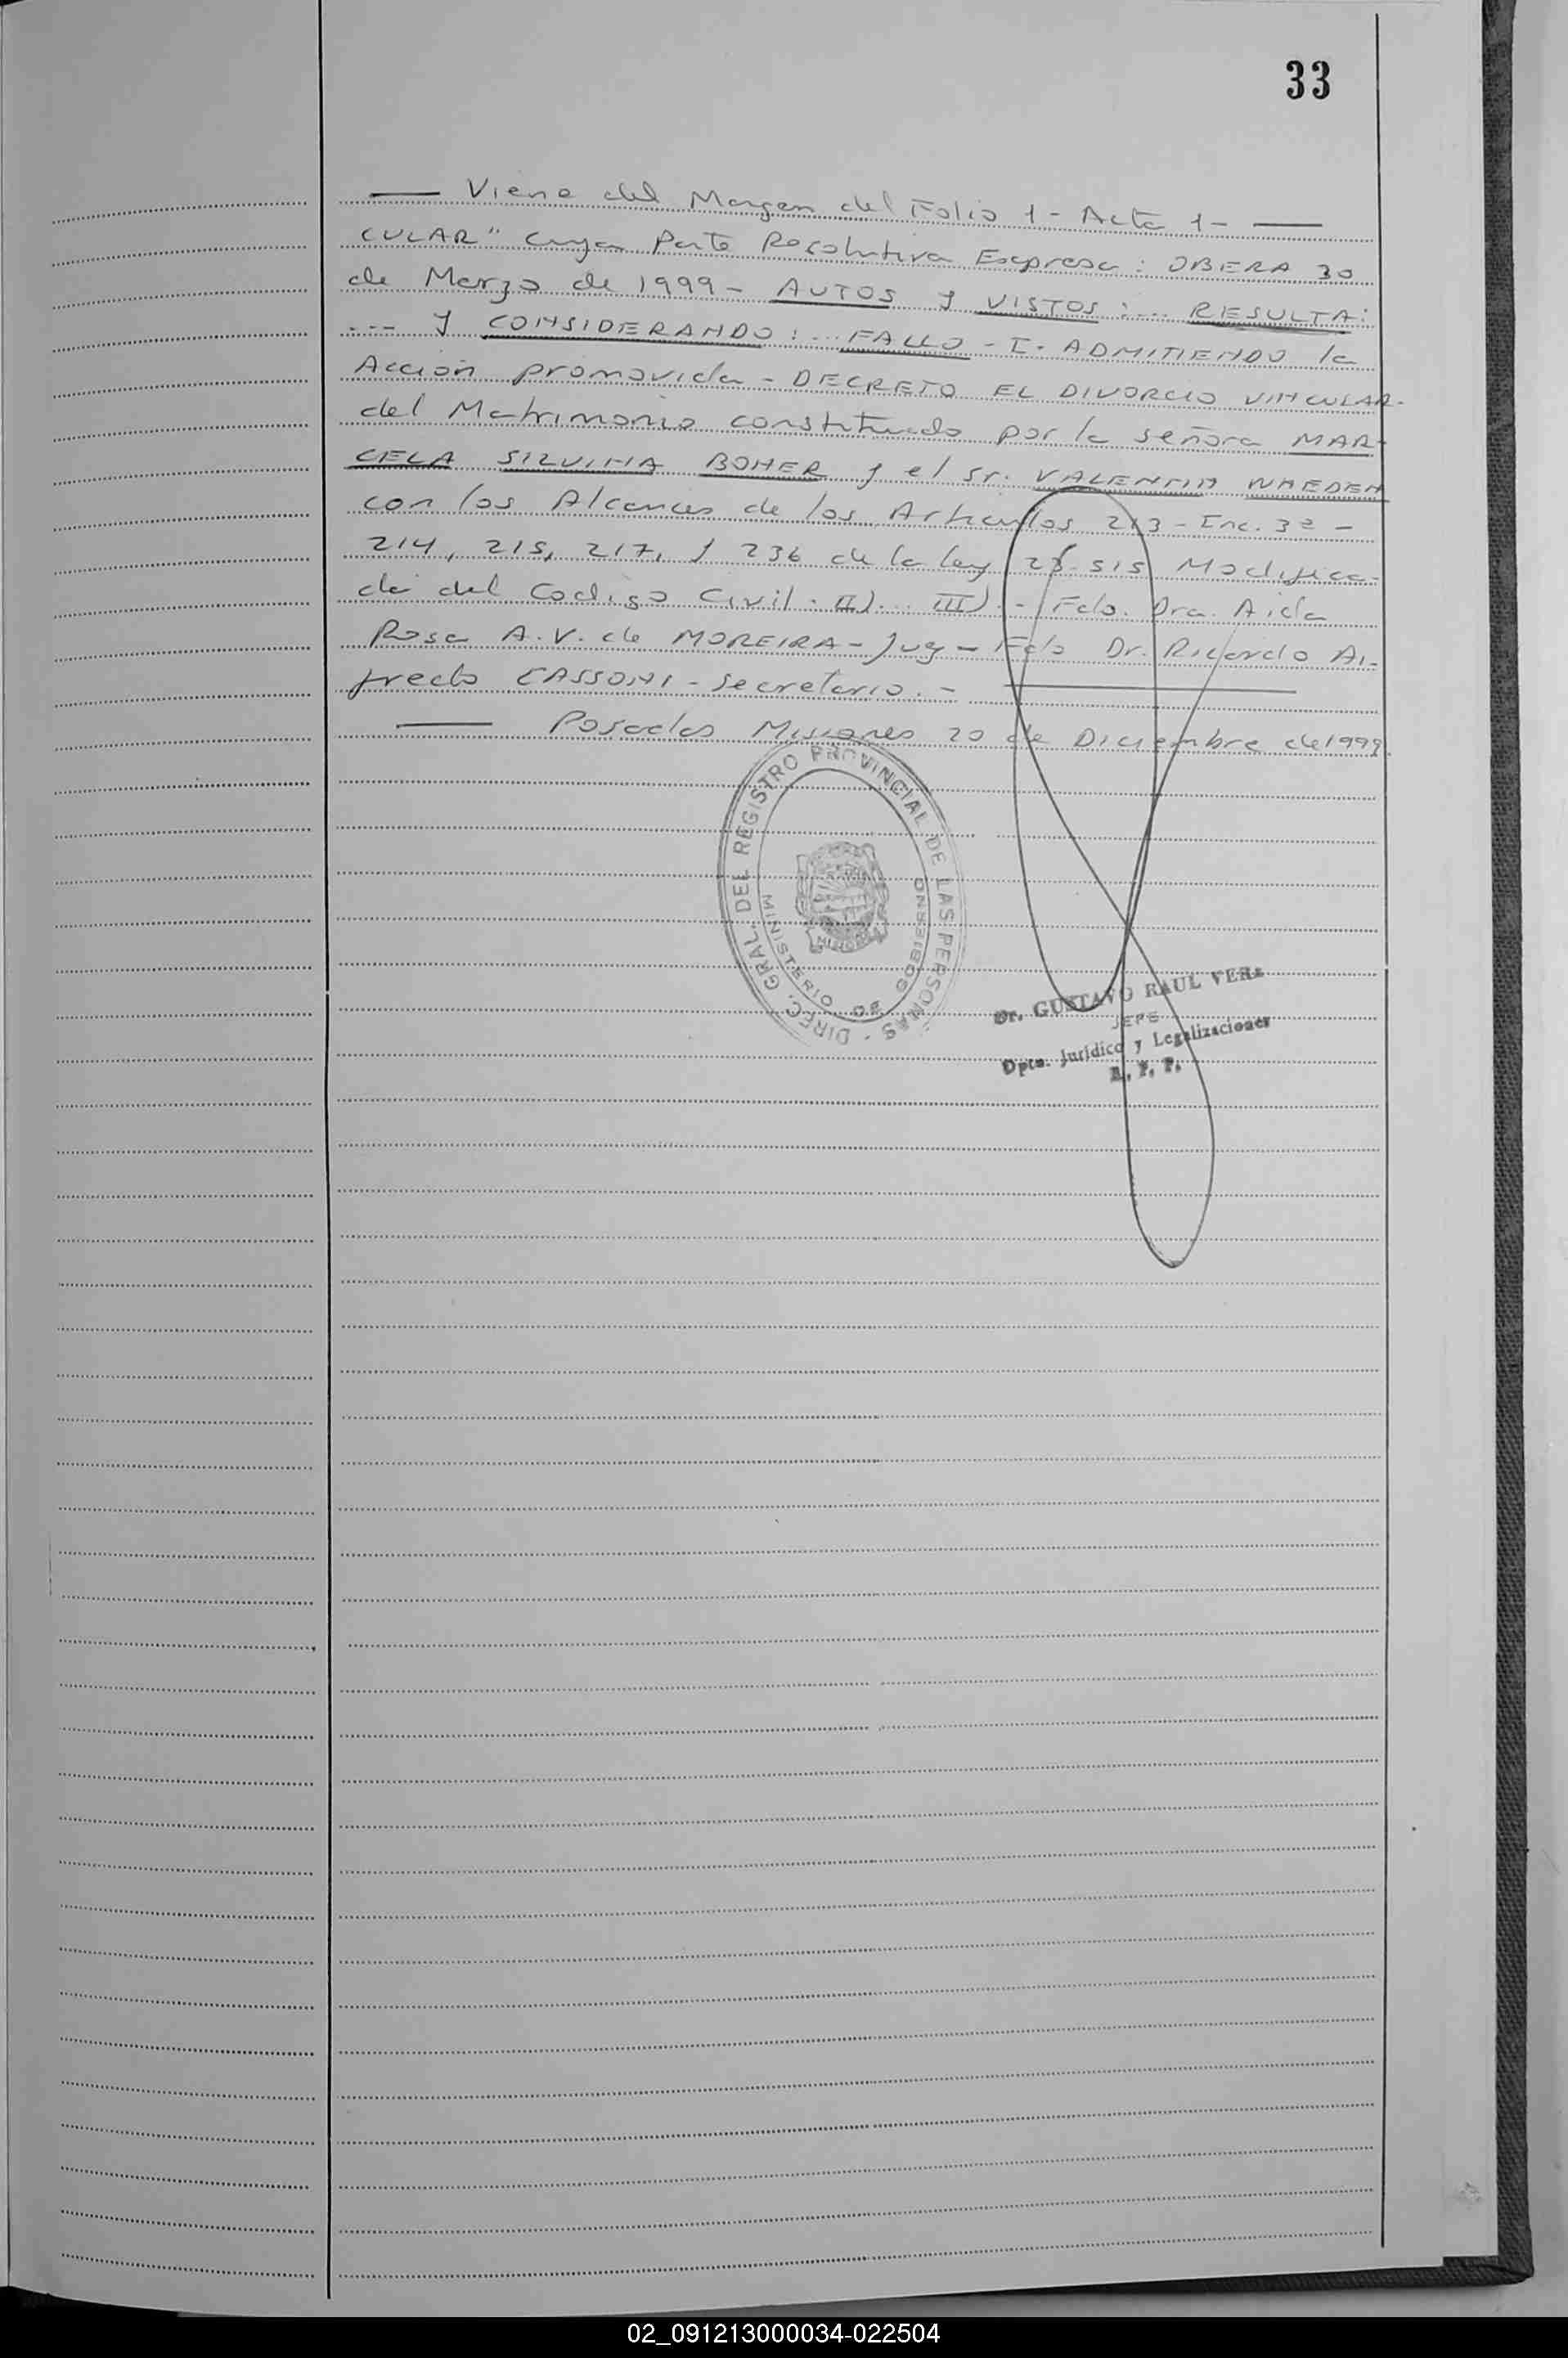 33
— Viene del Margen del Folio 1 - Acta 1 - —
CULAR" cuya Parte Resolutiva Expresa: OBERA 30
de Marzo de 1999 - AUTOS y VISTOS:... RESULTA:
... y CONSIDERANDO:... FALLO - I. ADMITIENDO la
Acción promovida - DECRETO EL DIVORCIO VINCULAR-
del Matrimonio constituido por la señora MAR-
CELA SILVINA BOHER y el Sr. VALENTIN
con los Alcances de los Articulos 213 - Inc. 3º -
214, 215, 217, y 236 de la ley 23.515 Modifica-
da del Codigo Civil. II)... III).- Fdo. Dra. Aida
Rosa A.V. de MOREIRA - Juez - Fdo Dr. Ricardo Al-
fredo CASSONI - Secretario. - —
— Posadas Misiones 20 de Diciembre de 1999.
DIREC. GRAL. DEL REGISTRO PROVINCIAL DE LAS PERSONAS -
MINISTERIO DE GOBIERNO
MISIONES
Dr. GUSTAVO RAUL VERA
JEFE
Dpto. Jurídico y Legalizaciones
R. P. P.
02_091213000034-022504